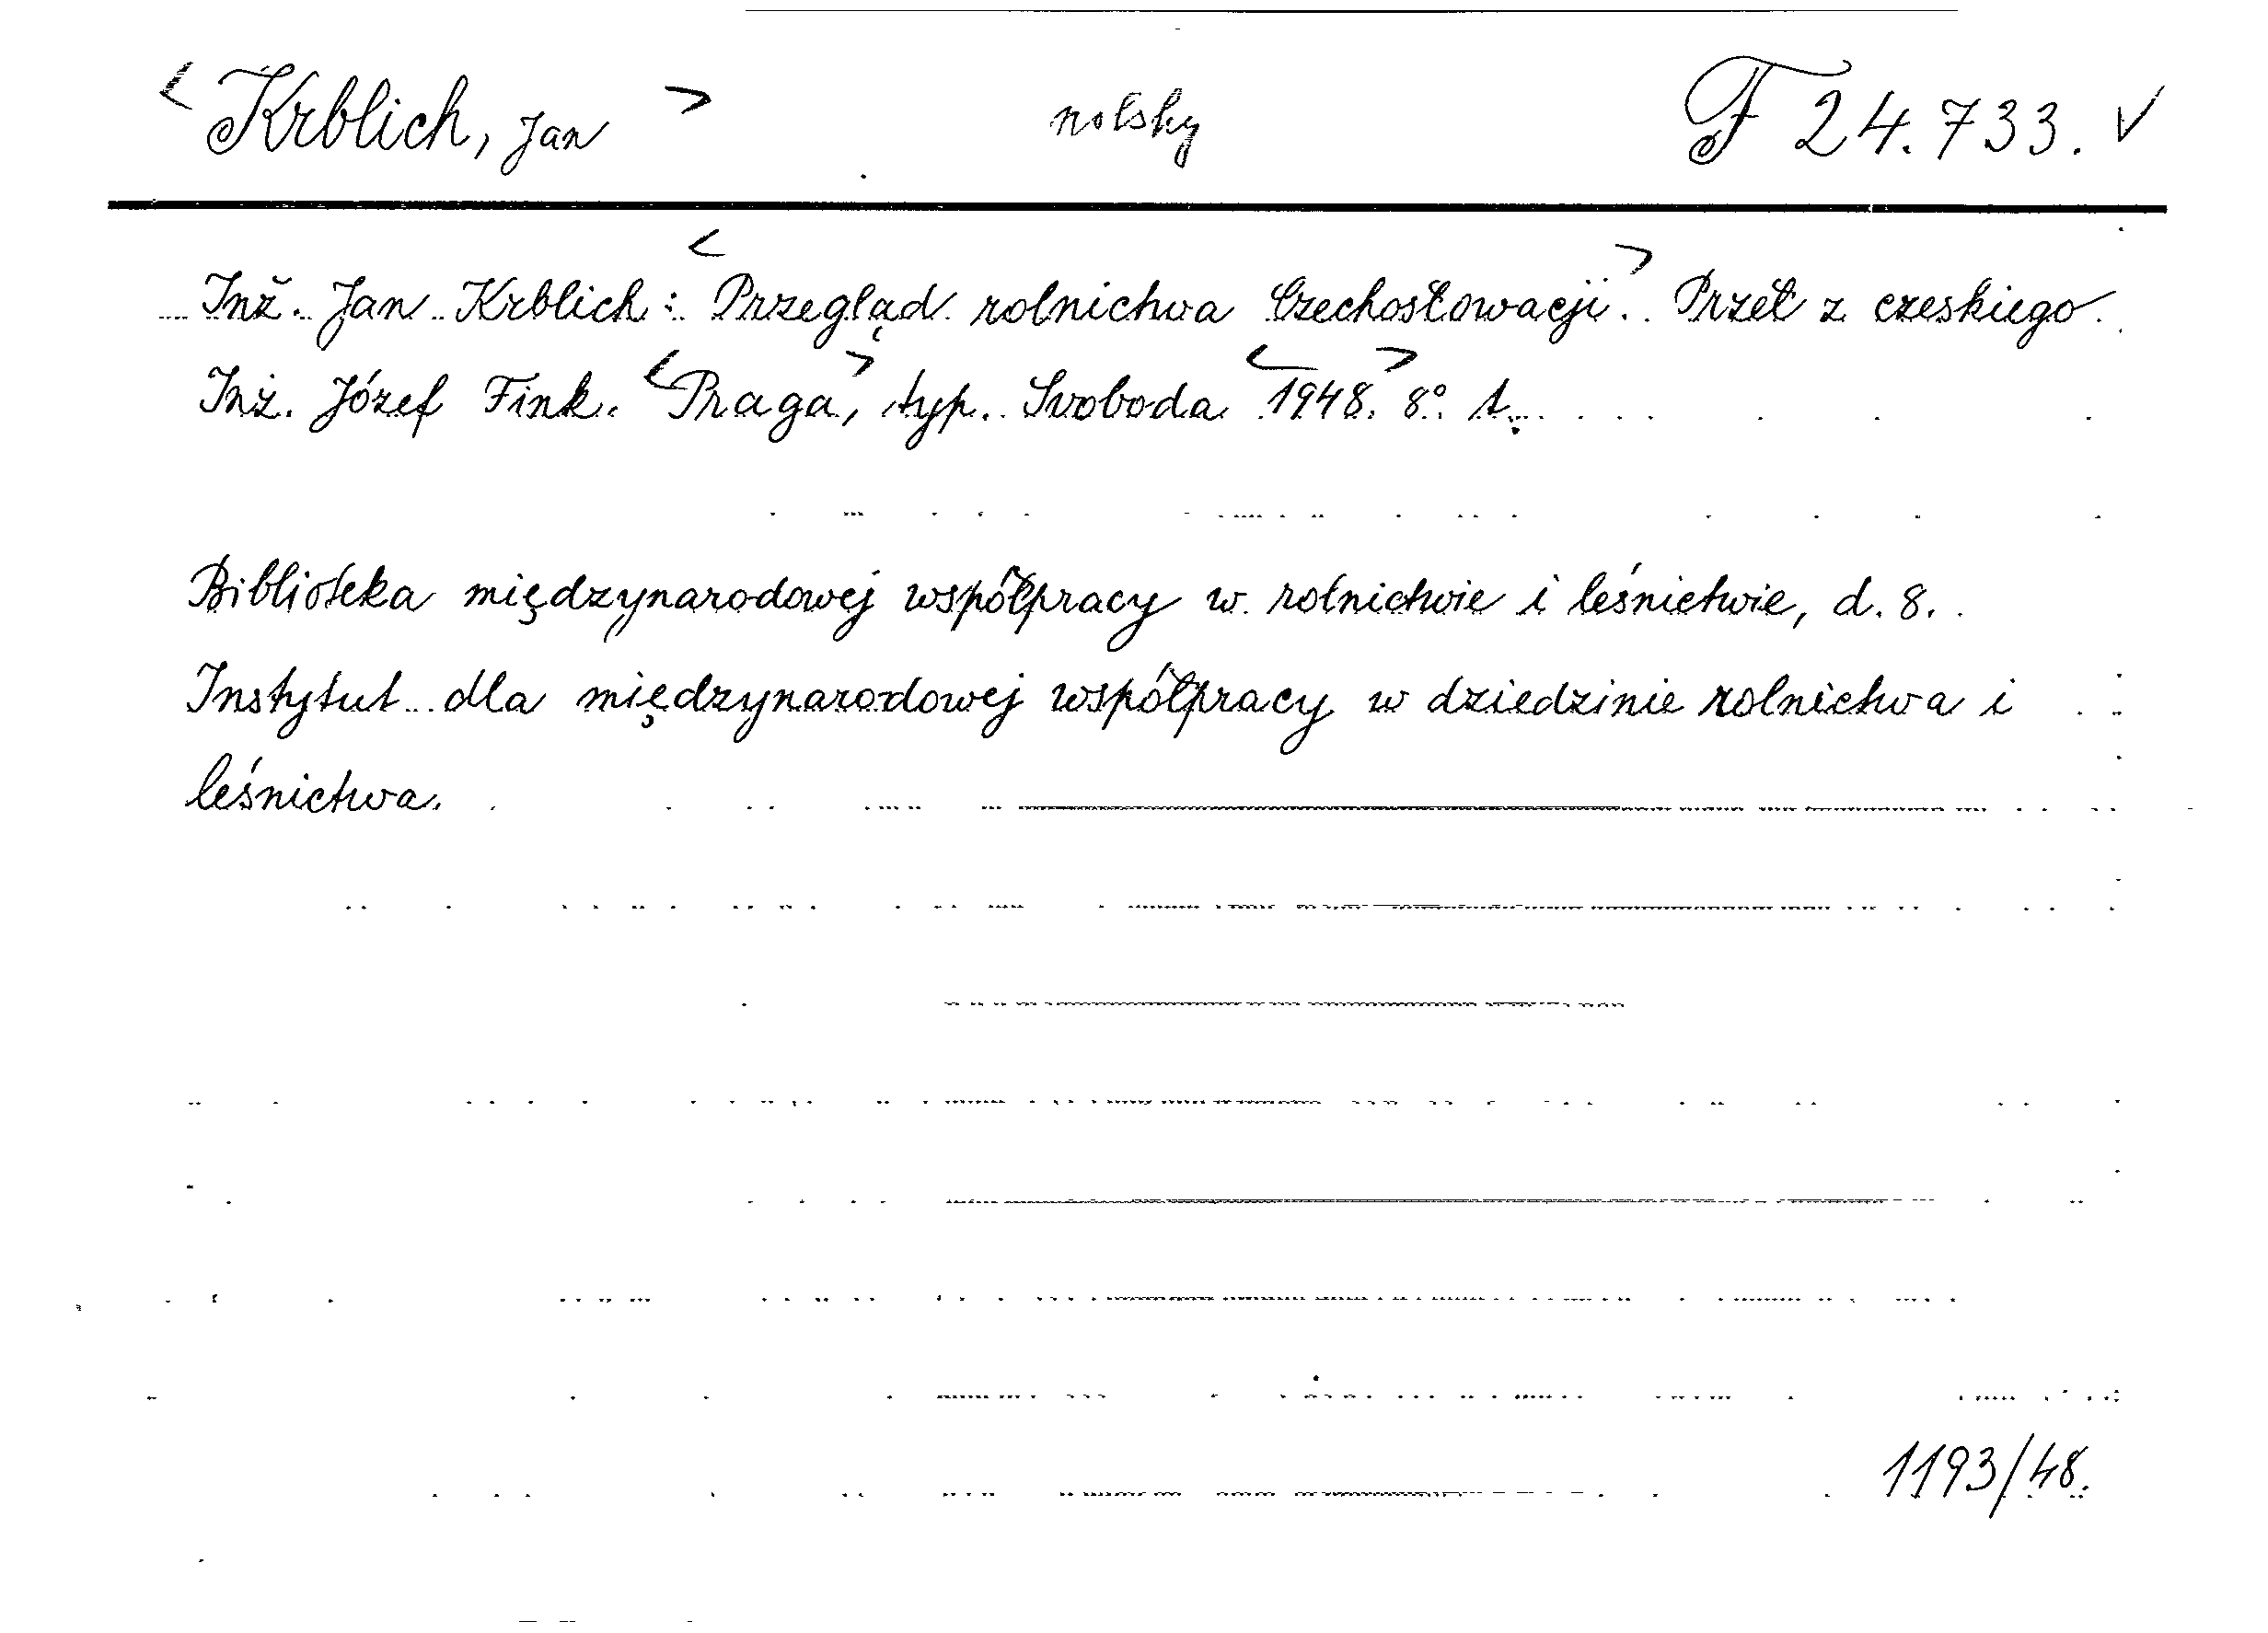 <Krblich, Jan> polsky F 24.733. ✓
Inž. Jan Krblich: <Przegląd rolnictwa Czechosłowacji>. Przeł z czeskiego
Inż. Józef Fink. <Praga>, typ. Svoboda <1948>. 8° 1.
Biblioteka międzynarodowej współpracy w rolnictwie i leśnictwie, d. 8.
Instytut dla międzynarodowej współpracy w dziedzinie rolnictwa i
leśnictwa.
1193/48.